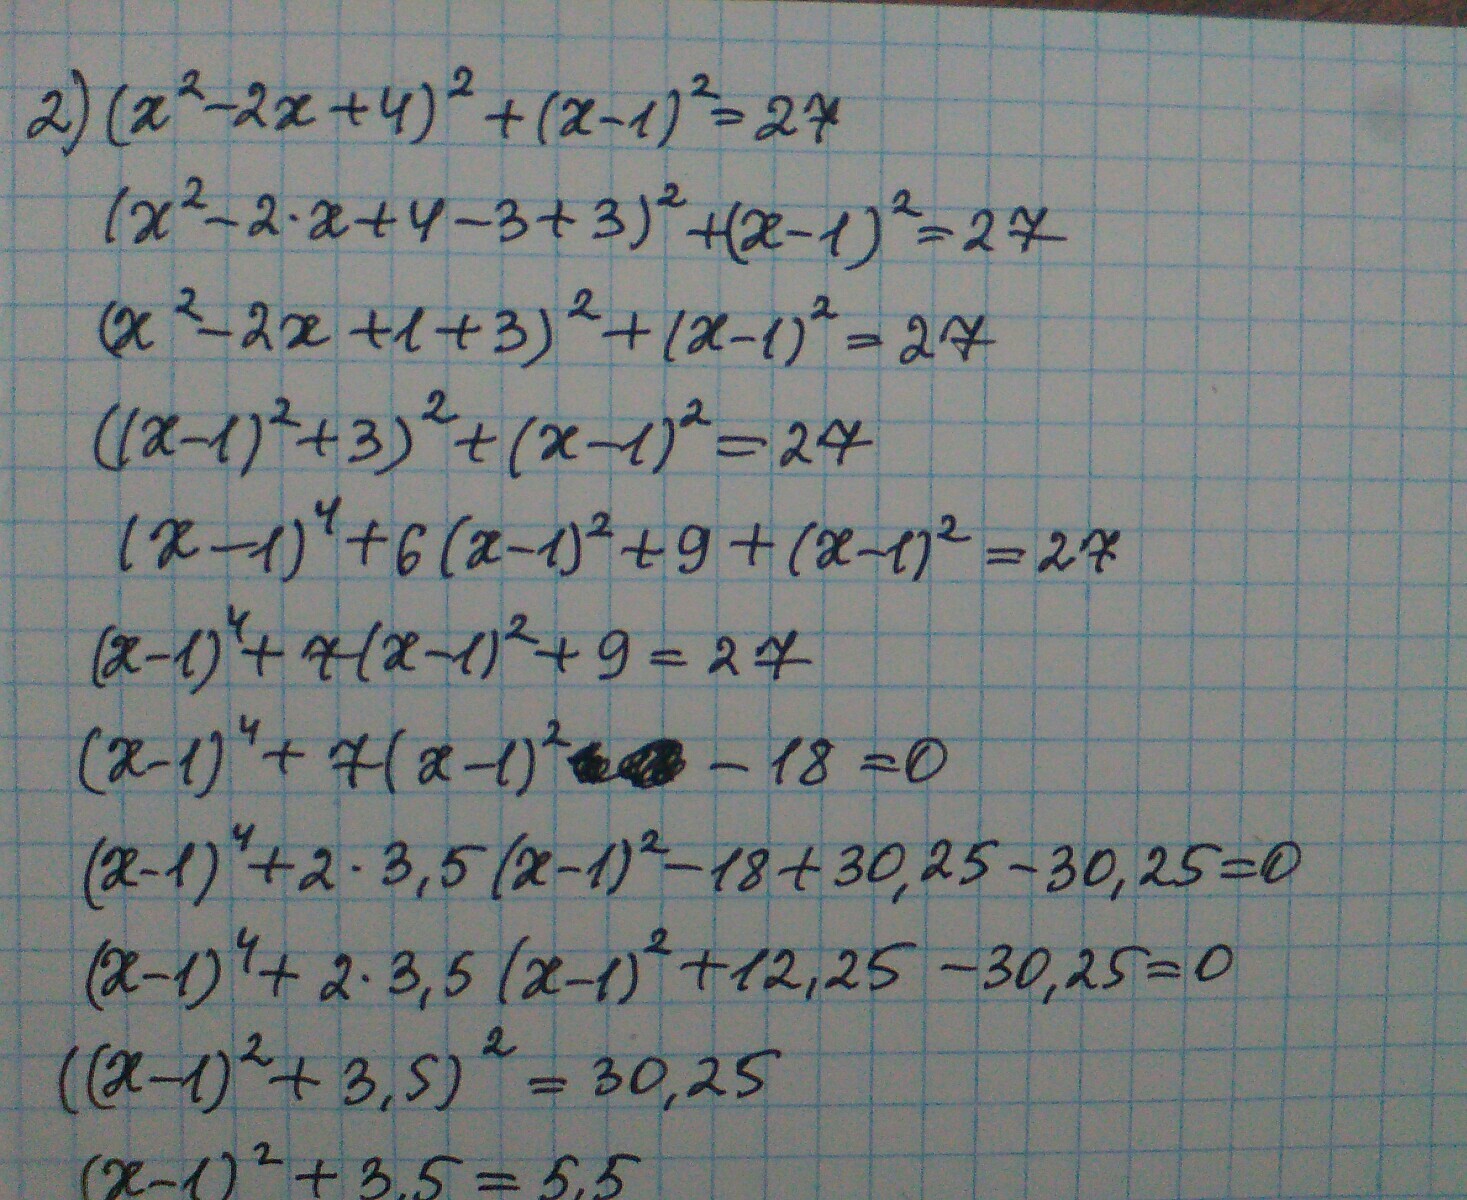 2) (x²-2x+4)²+(x-1)²=27
(x²-2·x+4-3+3)²+(x-1)²=27
(x²-2x+1+3)²+(x-1)²=27
((x-1)²+3)²+(x-1)²=27
(x-1)⁴+6(x-1)²+9+(x-1)²=27
(x-1)⁴+7(x-1)²+9=27
(x-1)⁴+7(x-1)²-18=0
(x-1)⁴+2·3,5(x-1)²-18+30,25-30,25=0
(x-1)⁴+2·3,5(x-1)²+12,25-30,25=0
((x-1)²+3,5)²=30,25
(x-1)²+3,5=5,5